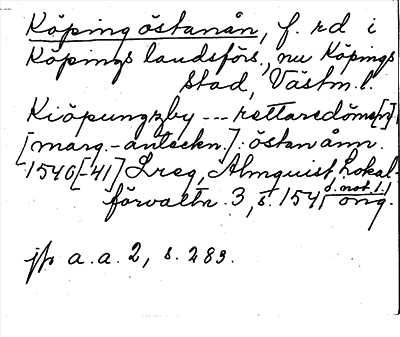 Köping östanån, f. rd i
Köpings landsförs., nu Köpings
stad, Västm. l.
Kiöpungzby --- rettaredöme[n]
[marg.-anteckn.]: östan ånn.
1540[-41] Lreg, Almquist, Lokal-
förvaltn. 3, s. 154 o. not. 1.
orig.
jfr a. a. 2, s. 283.